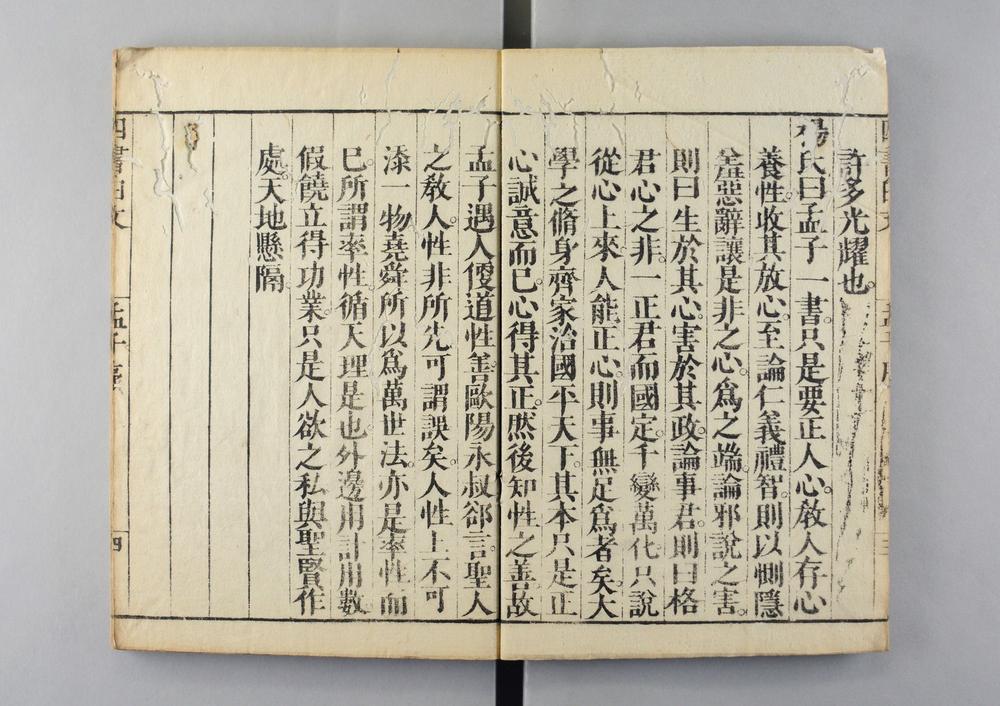 許多光耀也。
楊氏曰孟子一書只是要正人心教人存心
養性收其放心至論仁義禮智則以惻隱
羞惡辭讓是非之心為之端論邪說之害
則曰生於其心害於其政論事君則曰格
君心之非一正君而國定千變萬化只說
從心上來人能正心則事無足為者矣大
學之脩身齊家治國平天下其本只是正
心誠意而已心得其正然後知性之善故
孟子遇人便道性善歐陽永叔卻言聖人
之教人性非所先可謂誤矣人性上不可
添一物堯舜所以為萬世法亦是率性而
已所謂率性循天理是也外邊用計用數
假饒立得功業只是人欲之私與聖賢作
處天地懸隔
四書白文
孟子序
四